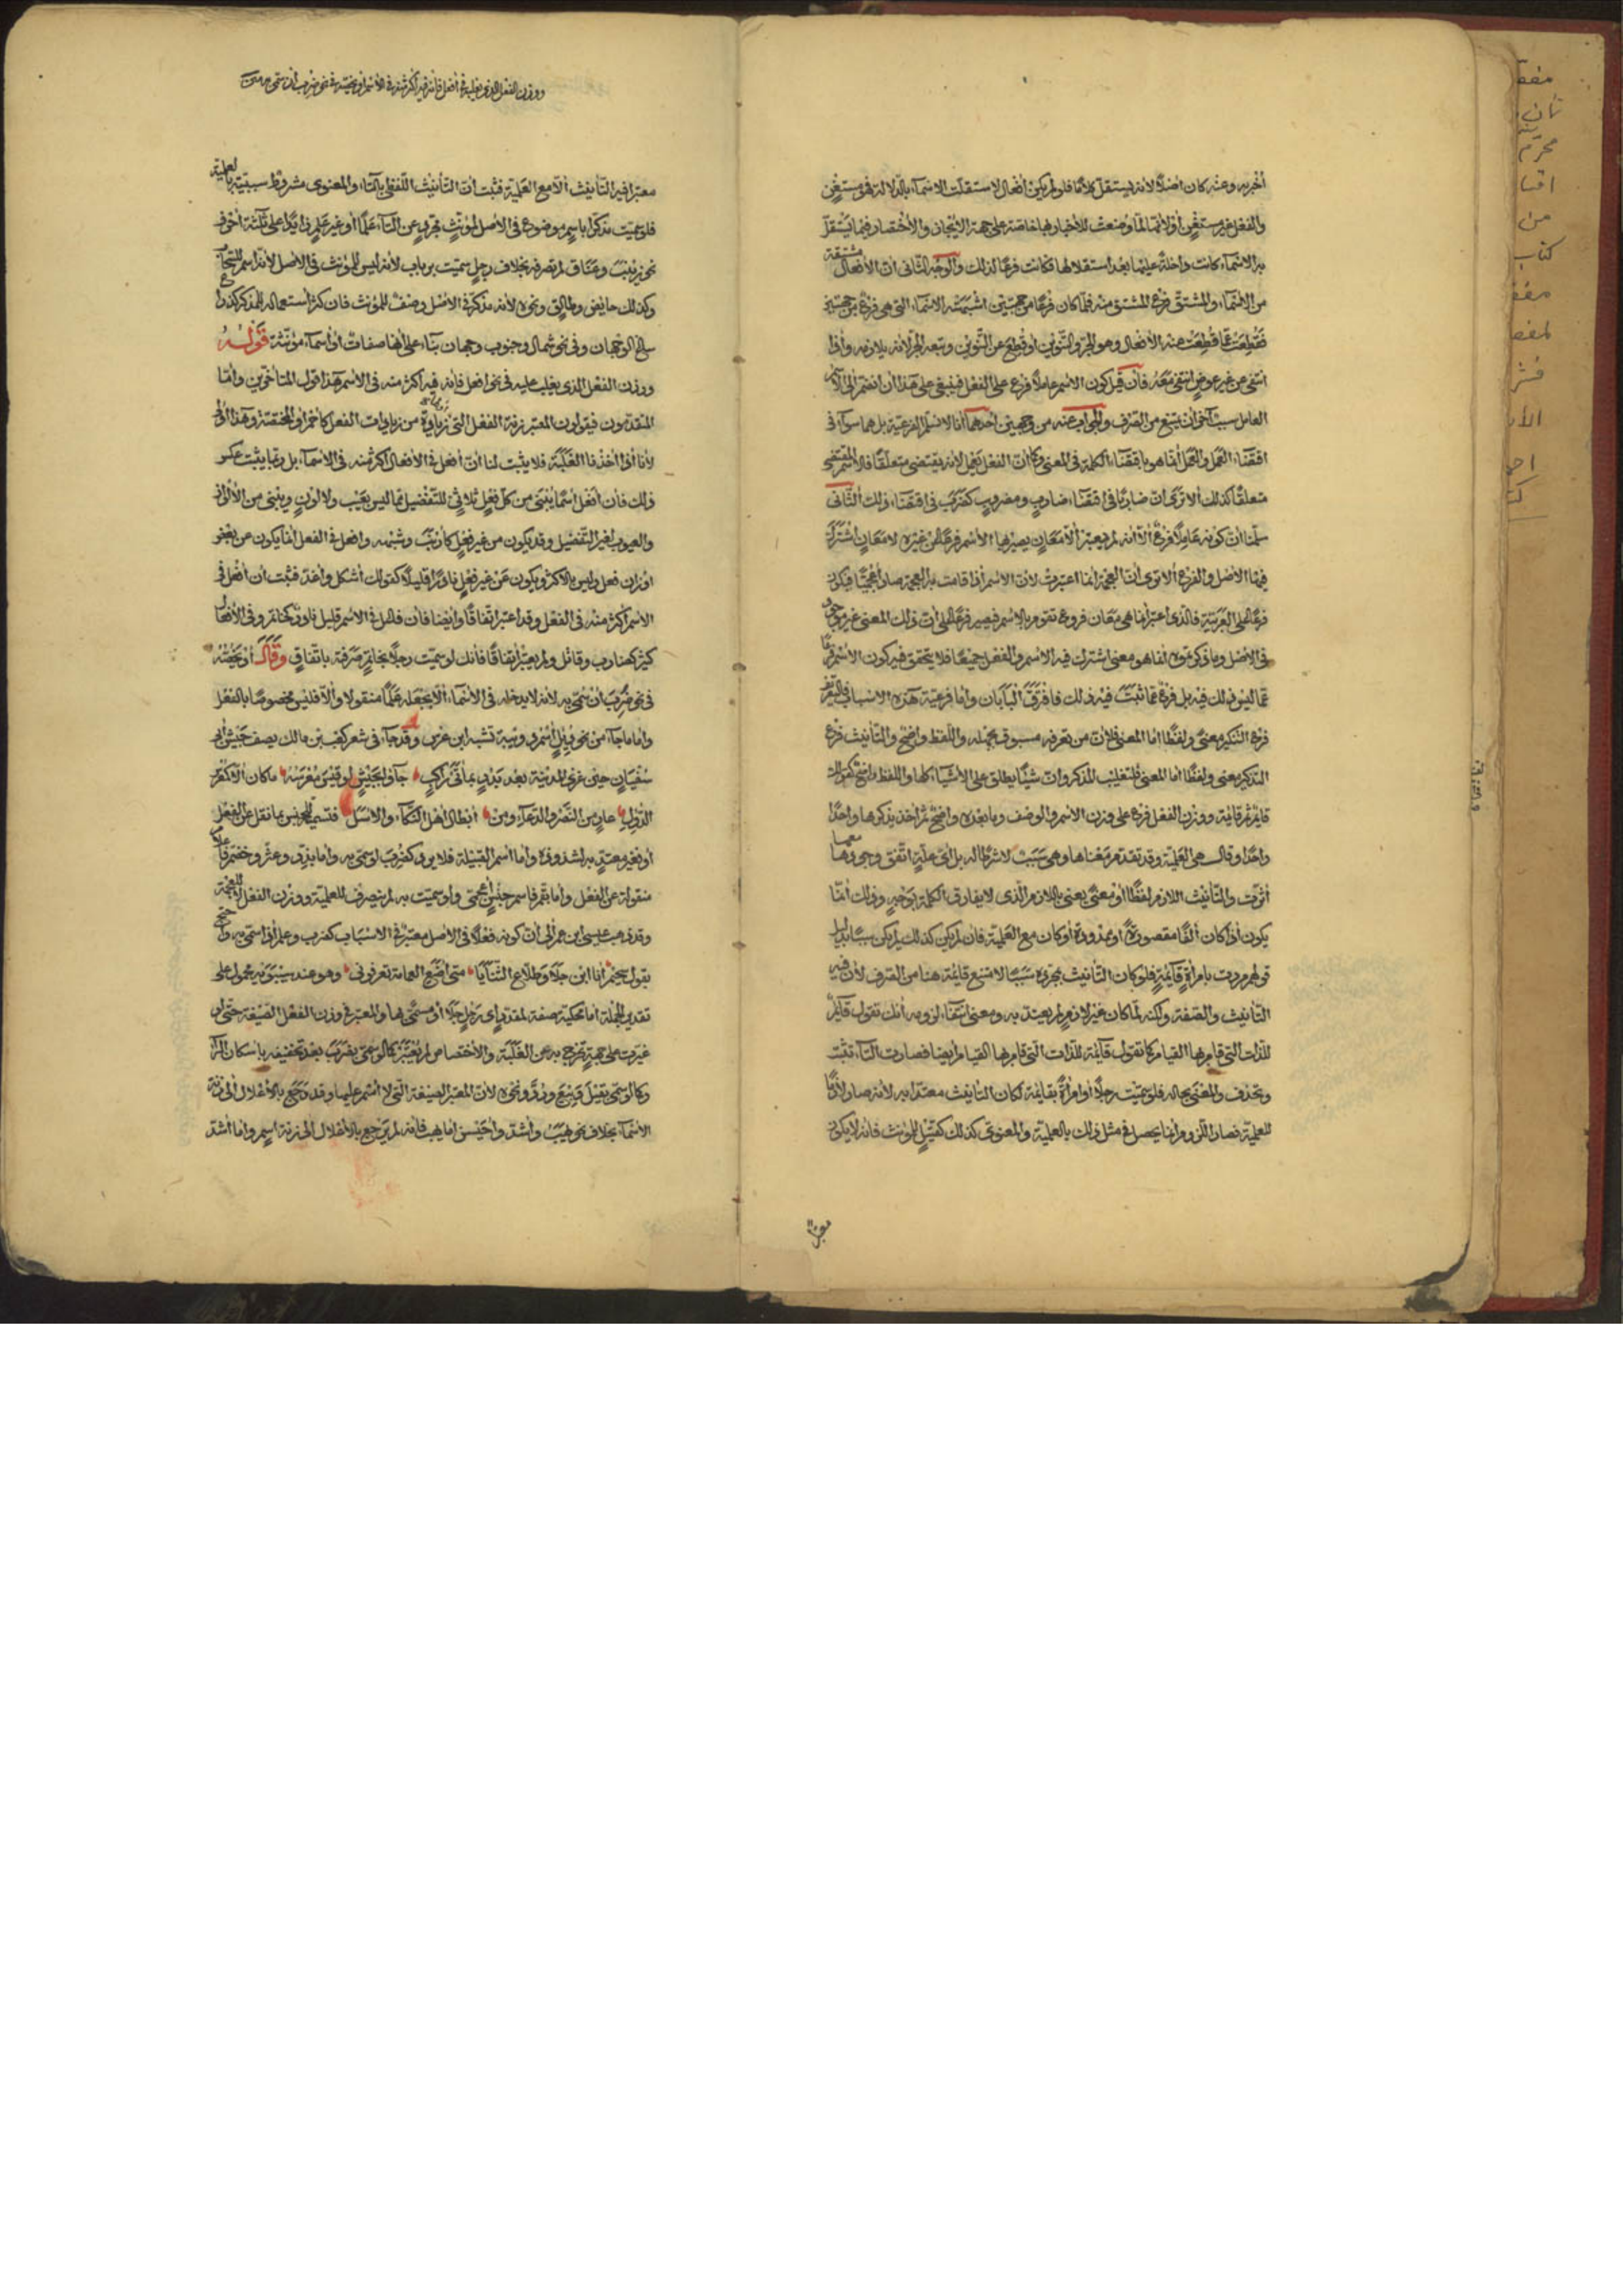 أخبر به وعنه كان أصلا لأنه يستقل كلاما فلو لم يكن أفعال لاستقلت الأسماء بالدلالة فهو مستغن
والفعل غير مستغن أو لأنها لما وضعت للأخبار بها خاصة على جهة الإيجاز والاختصار فيما يستقل
به الأسماء كانت داخلة عليها بعد استقلالها فكانت فرعا لذلك والوجه الثاني أن الأفعال مشتقة
من الأسماء والمشتق فرع المشتق منه فما كان فرعا من جهتين أشبهته الأسماء التي هي فرع من جهتين
فقطعت عما قطعت عنه الأفعال وهو الجر والتنوين أو قطع عن التنوين وتبعه الجر لأنه يلازمه وإذا
انتفى عن غير عوض انتفى معه فإن قيل كون الاسم عاملا فرع على الفعل فينبغي على هذا أن انضم إلى الاسم
العامل سبب آخر أن يمتنع من الصرف والجواب عنه من وجهين أحدهما أنا لا نسلم الفرعية بل هما سواء في
اقتضاء العمل والعمل إنما هو باقتضاء الكلمة في المعنى وكما أن الفعل يعمل لأنه يقتضي متعلقا فالاسم المقتضي
متعلقا كذلك ألا ترى أن ضاربا في اقتضاء ضارب ومضروب كضرب في اقتضاء ذلك الثاني
سلمنا أن كونه عاملا فرع إلا أنه لم يعتبر إلا معان يصير بها الاسم فرعا عن غيره لا معان اشترك
فيها الأصل والفرع ألا ترى أن العجمة إنما اعتبرت لأن الاسم إذا قامت به العجمة صار أعجميا فيكون
فرعا على العربية فالذي اعتبر إنما هي معان فروع تقوم بالاسم فيصير فرعا على أن ذلك المعنى غير موجود
في الأصل وما ذكرتموه إنما هو معنى اشترك فيه الاسم والفعل جميعا فلا يتحقق فيه كون الاسم فرعا
عما ليس ذلك فيه بل فرع عما ثبت فيه ذلك فافترق البابان وأما فرعية هذه الأسباب فالتعريف
فرع التنكير معنى ولفظا أما المعنى فلأن من تعرفه مسبوق بجهله واللفظ واضح والتأنيث فرع
التذكير معنى ولفظا أما المعنى فلتغليب المذكر وأن شيئا يطلق على الأشياء كلها واللفظ واضح كقولك
قائم ثم قائمة ووزن الفعل فرع على وزن الاسم والوصف وما بعده واضح ثم أخذ يذكرها واحدا
واحدا وقال هي العلمية وقد تقدم معناها وهي سبب لا شرط له بل أي علة اتفق وجودها معها
أثرت والتأنيث اللازم لفظا أو معنى يعني باللازم الذي لا يفارق الكلمة بوجه وذلك إنما
يكون إذا كان ألفا مقصورة أو ممدودة أو كان مع العلمية فإن لم يكن كذلك لم يكن سببا بدليل
قولهم مررت بامرأة قائمة فلو كان التأنيث بمجرده سببا لامتنع قائمة هنا من الصرف لأن فيه
التأنيث والصفة ولكنه لما كان غير لازم لم يعتد به ومعنى انتفاء لزومه أنك تقول قائم
للذات التي قام بها القيام كما تقول قائمة للذات التي قام بها القيام أيضا فصارت التاء تثبت
وتحذف والمعنى بحاله فلو سميت رجلا أو امرأة بقائمة لكان التأنيث معتدا به لأنه صار لازما
للعلمية فصار اللزوم إنما يحصل في مثل ذلك بالعلمية والمعنوي كذلك كقتيل للمؤنث فإنه لا يكون
معتبرا
ووزن الفعل الذي يغلبه في أفعل فإنه فيه أكثر منه في الاسم أو يخصه في نحو ضرب إن سمي به
معتبرا فيه التأنيث إلا مع العلمية فثبت أن التأنيث اللفظي بالتاء والمعنوي مشروط سببيته بالعلمية
فلو سميت مذكرا باسم موضوع في الأصل لمؤنث مجرد عن التاء علما أو غير علم زايدا على ثلثة أحرف
نحو زينب وعناق لم تصرفه بخلاف رجل سميته برباب لأنه ليس للمؤنث في الأصل لأنه اسم للسحاب
وكذلك حايض وطالق ونحوه لأنه مذكر في الأصل وصف للمؤنث فإن كثر استعماله للمذكر كذراع
ساغ الوجهان وفي نحو شمال وجنوب وجهان بناء على أنها صفات أو أسماء مؤنثة قوله
ووزن الفعل الذي يغلب عليه في نحو افعل فإنه فيه أكثر منه في الاسم هذا قول المتأخرين وأما
المتقدمون فيقولون المعتبر زنة الفعل التي زيادته من زيادات الفعل كأحمر أو المختصة وهذا أولى
لأنا إذا أخذنا الغلبة فلا يثبت لنا أن أفعل في الأفعال أكثر منه في الأسماء بل ربما يثبت عكس
ذلك فإن أفعل اسما يبنى من كل فعل ثلاثي للتفضيل مما ليس بعيب ولا لون ويبنى من الألوان
والعيوب لغير التفضيل وقد يكون من غير فعل كأرنب وشبهه وافعل في الفعل إنما يكون من بعض
أوزان فعل وليس بالأكثر ويكون عن غير فعل نادرا قليلا كقولك أشكل وأغد فثبت أن أفعل في
الاسم أكثر منه في الفعل وقد اعتبر اتفاقا وأيضا فإن فاعل في الاسم قليل نادر كخاتم وفي الأفعال
كثير كضارب وقاتل ولم يعتبر اتفاقا فإنك لو سميت رجلا بخاتم صرفته باتفاق وقال أو يخصه
في نحو ضرب إن سمي به لأنه لا يدخله في الأسماء إلا بجعله علما منقولا وإلا فليس مخصوصا بالفعل
وأما ما جاء من نحو دئل اسم دويبة تشبه ابن عرس وقد جاء في شعر كعب بن مالك يصف جيش أبي
سفيان حين غزى المدينة بعد بدر بمائتي راكب جاؤا بجيش لو قيس معرسه ما كان إلا كمعرس
الدئل عار من النصر والدعاء ومن أبطال أهل النكاء والأسل فتسمية للجنس بما نقل عن الفعل
أو نغير معتد به لشذوذه وأما اسم القبيلة فلا يرد كضرب لو سمي به وأما بذر وعثر وخضم فأعلام
منقولة عن الفعل وأما بقم فاسم جنس أعجمي ولو سميت به لم ينصرف للعلمية ووزن الفعل لا للعجمة
وقد ذهب عيسى ابن عمر إلى أن كونه فعلا في الأصل معتبر في الأسباب كضرب وعلم إذا سمي به واحتج
بقول سحيم أنا ابن جلا وطلاع الثنايا متى أضع العمامة تعرفوني وهو عند سيبويه محمول على
تقدير الجملة إما محكية صفة لمقدر أي رجل جلا أو مسمى بها والمعتبر في وزن الفعل الصيغة حتى لو
غيرت على جهة تخرج به عن الغلبة والاختصاص لم يعتبر كما لو سمي بضرب بعد تخفيفه بإسكان الراء
وكما لو سمي بقيل وبيع ورد ونحوه لأن المعتبر الصيغة التي لا اسم عليها وقد رجع بالإعلال إلى زنة
الأسماء بخلاف نحو هبب وأشد وأخيس إما يهب فإنه لم يرجع بالإعلال إلى زنة اسم وأما أشد